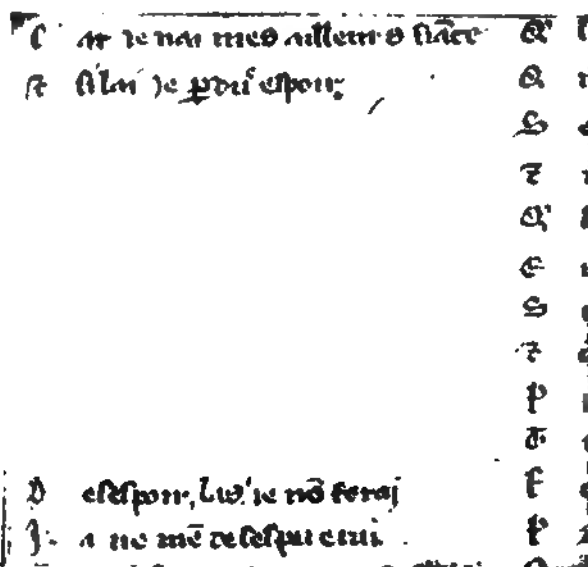 C ar ie nai mes ailleurs fiāce
et si lai je ꝑdu espoir
D esespoir, Las ie nō feraj
J a ne mē desesperrai
Q'
Q
S
⁊
Q'
E
S
⁊
P
F
P